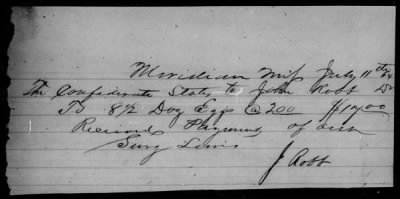 Meridian Miss July 11th 64
The Confederate States to John Robb Dr
To 8½ Doz Eggs @ 2.00 $17.00
Received Payment of
Surg Lewis
J Robb